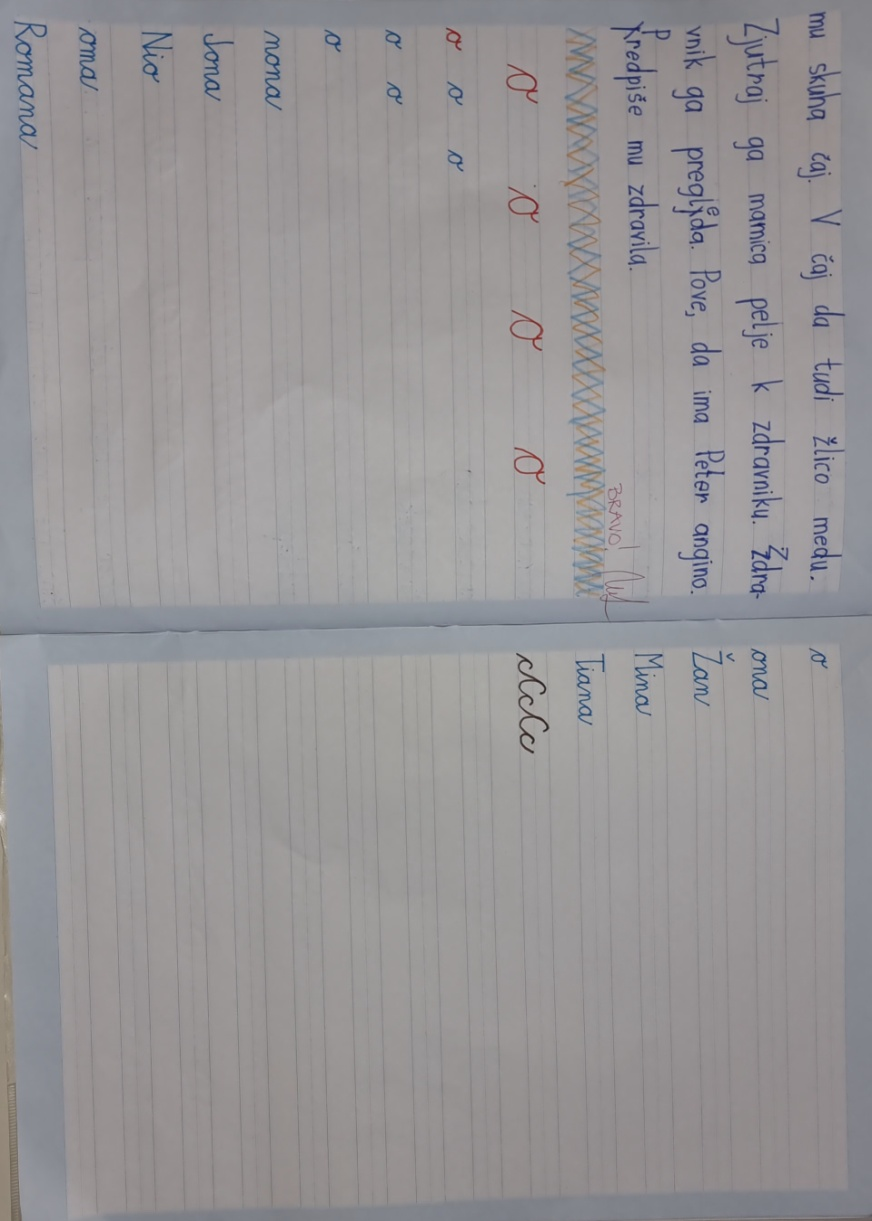 mu skuha čaj. V čaj da tudi žlico medu.
Zjutraj ga mamica pelje k zdravniku. Zdra-
vnik ga pregleda. Pove, da ima Peter angino.
Predpiše mu zdravila.
BRAVO!
O O O O
o o o
o o
o
nona
Jona
Nio
oma
Romana
o
ona
Žan
Mina
Tiana